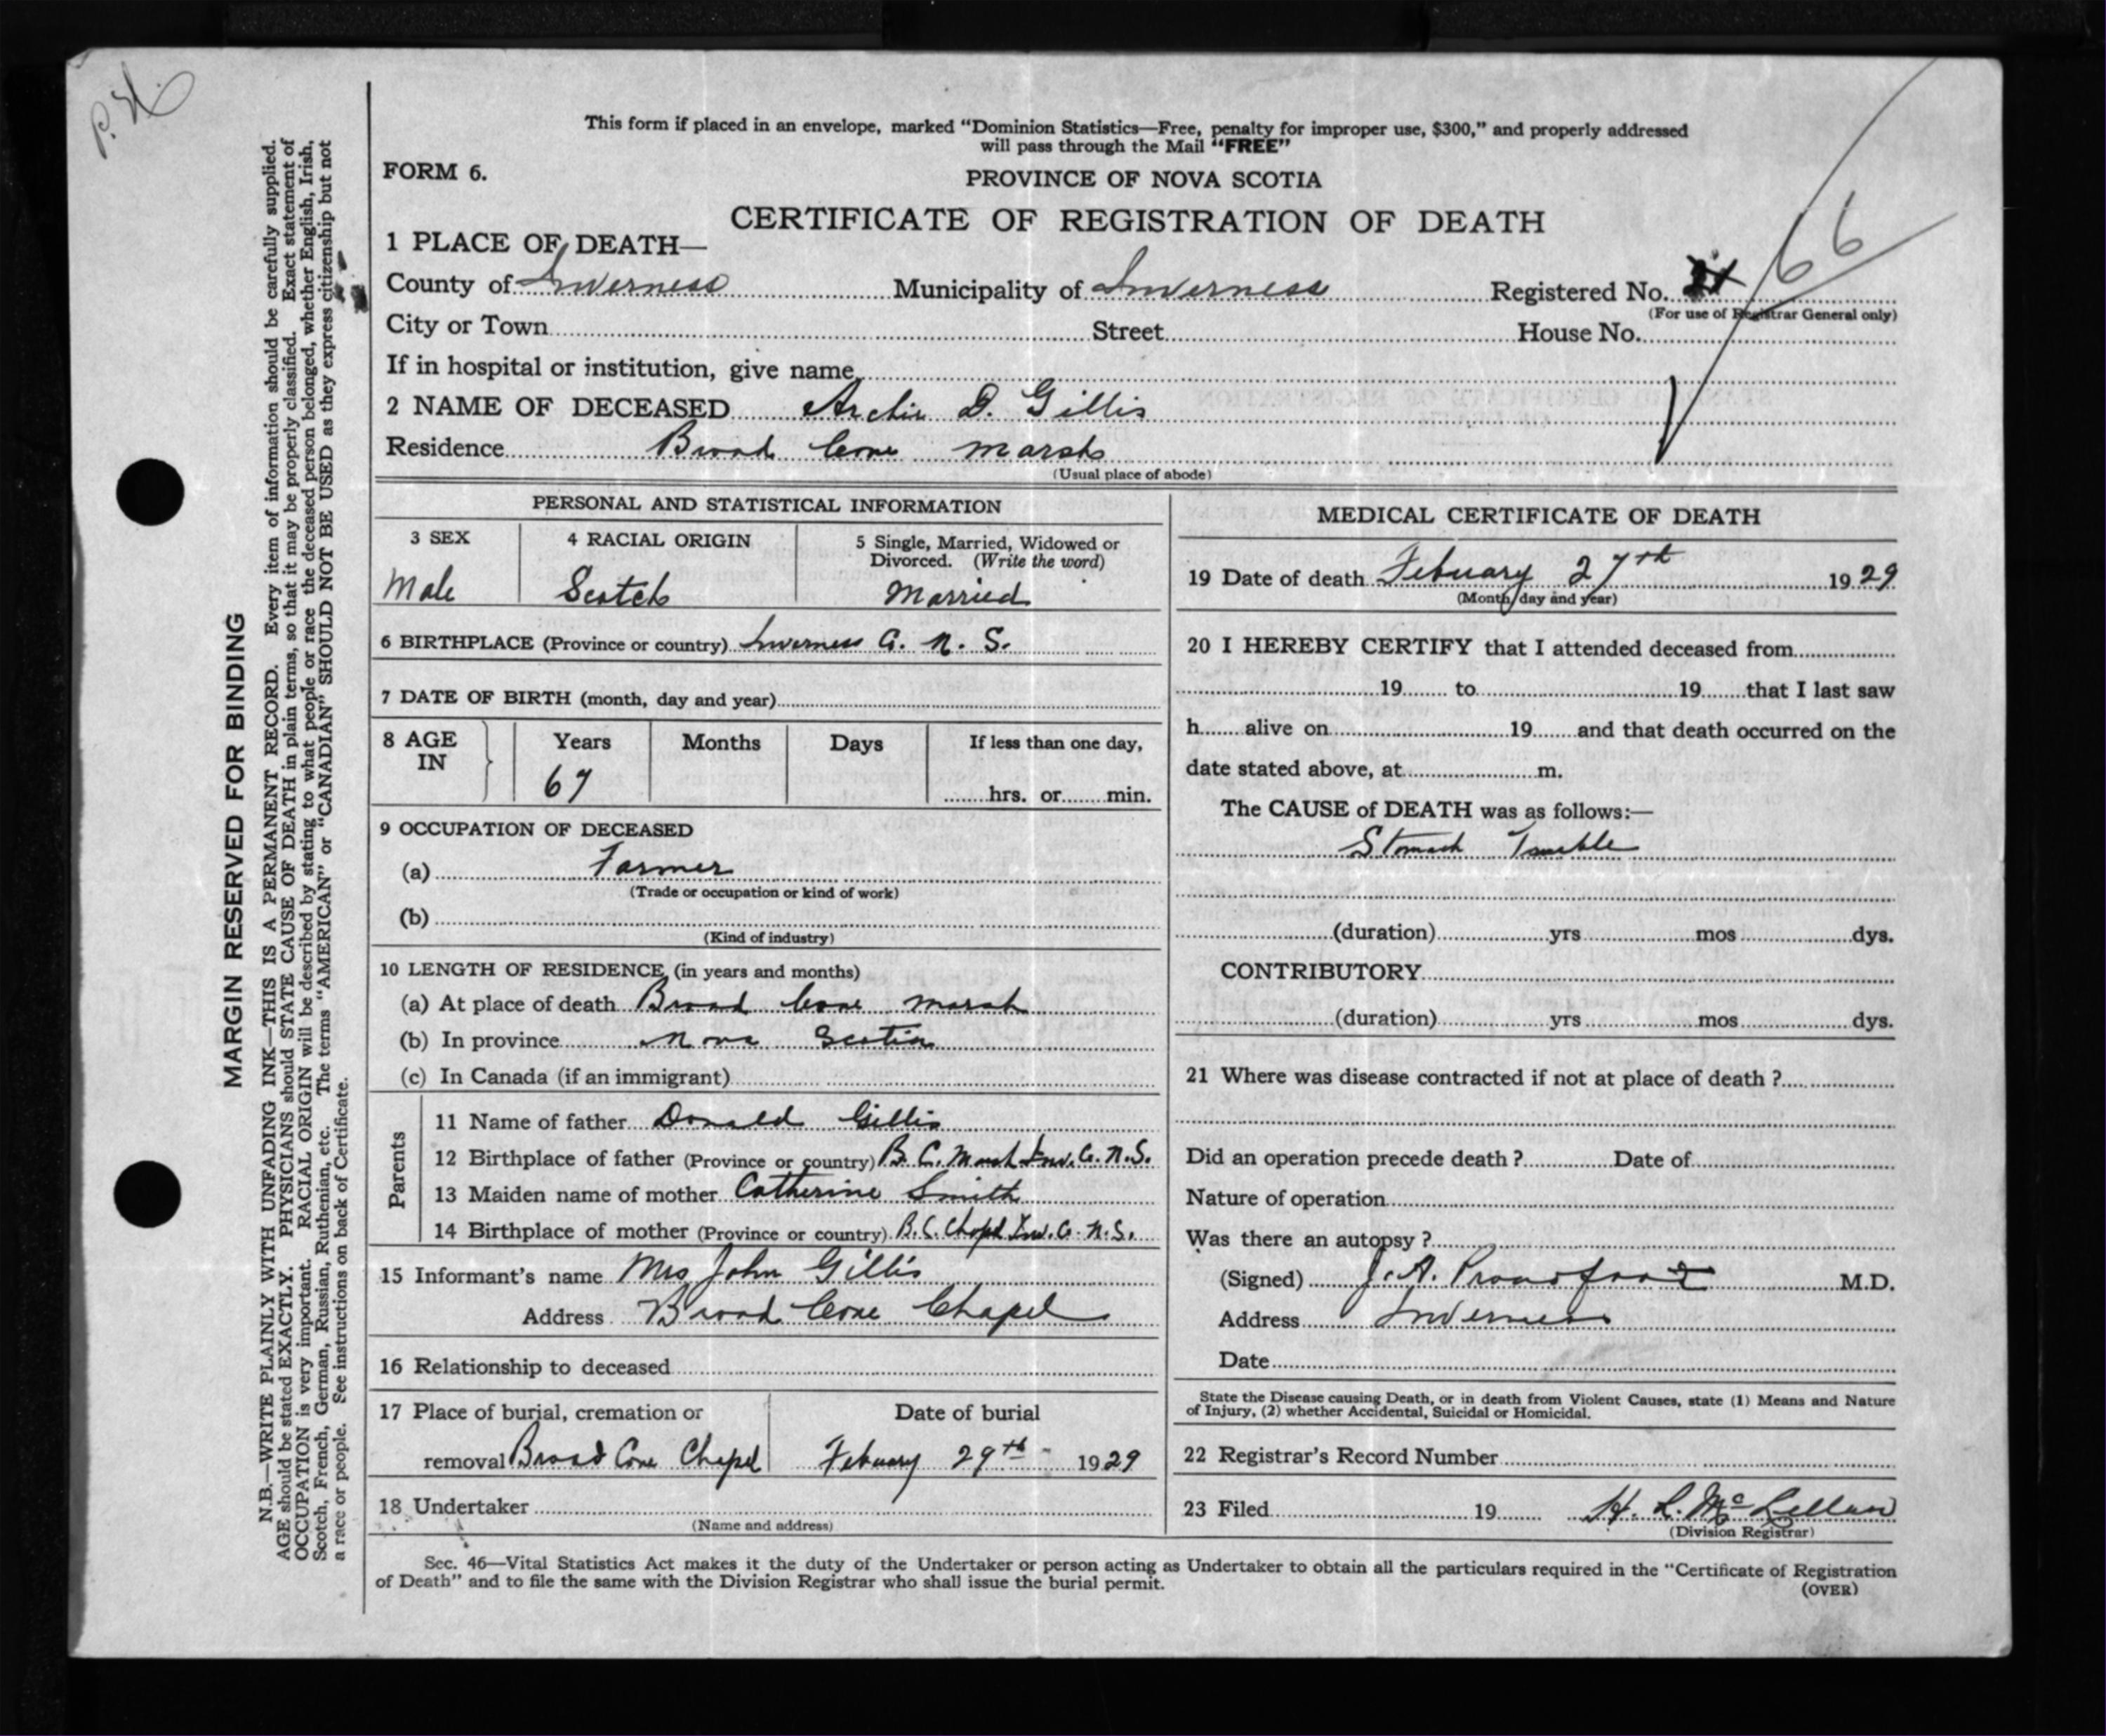 P.H.
This form if placed in an envelope, marked “Dominion Statistics—Free, penalty for improper use, $300,” and properly addressed
will pass through the Mail “FREE”
FORM 6.
PROVINCE OF NOVA SCOTIA
CERTIFICATE OF REGISTRATION OF DEATH
1 PLACE OF DEATH—
County of Inverness Municipality of Inverness Registered No. 66
(For use of Registrar General only)
City or Town Street House No.
If in hospital or institution, give name
2 NAME OF DECEASED Archie D. Gillis
Residence Broad Cove Marsh
(Usual place of abode)
PERSONAL AND STATISTICAL INFORMATION
3 SEX 4 RACIAL ORIGIN 5 Single, Married, Widowed or
Divorced. (Write the word)
Male Scotch Married
6 BIRTHPLACE (Province or country) Inverness Co. N. S.
7 DATE OF BIRTH (month, day and year)
8 AGE Years Months Days If less than one day,
IN
67
hrs. or min.
9 OCCUPATION OF DECEASED
(a) Farmer
(Trade or occupation or kind of work)
(b)
(Kind of industry)
10 LENGTH OF RESIDENCE (in years and months)
(a) At place of death Broad Cove Marsh
(b) In province Nova Scotia
(c) In Canada (if an immigrant)
Parents
11 Name of father Donald Gillis
12 Birthplace of father (Province or country) B. C. Marsh Inv. Co. N.S.
13 Maiden name of mother Catherine Smith
14 Birthplace of mother (Province or country) B.C. Chapel Inv. Co. N.S.
15 Informant's name Mrs John Gillis
Address Broad Cove Chapel
16 Relationship to deceased
17 Place of burial, cremation or Date of burial
removal Broad Cove Chapel Febuary 29th - 1929
18 Undertaker
(Name and address)
MEDICAL CERTIFICATE OF DEATH
19 Date of death Febuary 27th 1929
(Month, day and year)
20 I HEREBY CERTIFY that I attended deceased from
19 to 19 that I last saw
h alive on 19 and that death occurred on the
date stated above, at m.
The CAUSE of DEATH was as follows:—
Stomach Trouble
(duration) yrs mos dys.
CONTRIBUTORY
(duration) yrs mos dys.
21 Where was disease contracted if not at place of death ?
Did an operation precede death ? Date of
Nature of operation
Was there an autopsy ?
(Signed) J. A. Proudfoot M.D.
Address Inverness
Date
State the Disease causing Death, or in death from Violent Causes, state (1) Means and Nature
of Injury, (2) whether Accidental, Suicidal or Homicidal.
22 Registrar's Record Number
23 Filed 19 H. L. McLellan
(Division Registrar)
Sec. 46—Vital Statistics Act makes it the duty of the Undertaker or person acting as Undertaker to obtain all the particulars required in the “Certificate of Registration
of Death” and to file the same with the Division Registrar who shall issue the burial permit.
(OVER)
MARGIN RESERVED FOR BINDING
N.B.—WRITE PLAINLY WITH UNFADING INK—THIS IS A PERMANENT RECORD. Every item of information should be carefully supplied.
AGE should be stated EXACTLY. PHYSICIANS should STATE CAUSE OF DEATH in plain terms, so that it may be properly classified. Exact statement of
OCCUPATION is very important. RACIAL ORIGIN will be described by stating to what people or race the deceased person belonged, whether English, Irish,
Scotch, French, German, Russian, Ruthenian, etc. The terms “AMERICAN” or “CANADIAN” SHOULD NOT BE USED as they express citizenship but not
a race or people. See instructions on back of Certificate.